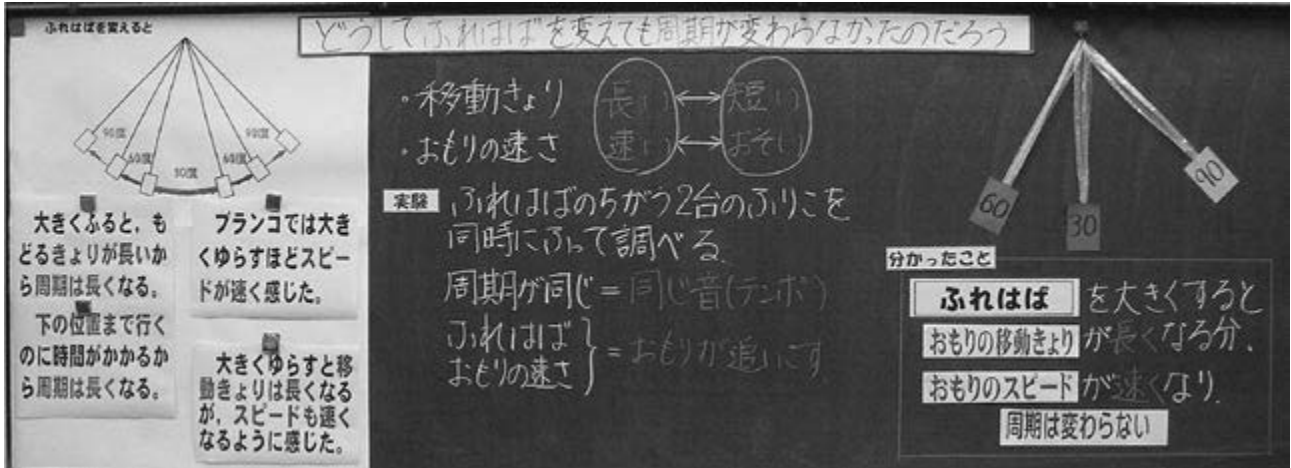 ふれはばを変えると
90度
90度
60度
60度
30度
大きくふると，も
どるきょりが長いか
ら周期は長くなる。
下の位置まで行く
のに時間がかかるか
ら周期は長くなる。
ブランコでは大き
くゆらすほどスピー
ドが速く感じた。
大きくゆらすと移
動きょりは長くなる
が，スピードも速く
なるように感じた。
どうしてふれはばを変えても周期が変わらなかったのだろう
・移動きょり 長い ↔ 短い
・おもりの速さ 速い ↔ おそい
実験 ふれはばのちがう2台のふりこを
同時にふって調べる
周期が同じ＝同じ音(テンポ)
ふれはば
おもりの速さ } ＝おもりが追いこす
60
30
90
分かったこと
ふれはば を大きくすると
おもりの移動きょり が長くなる分，
おもりのスピード が速くなり，
周期は変わらない